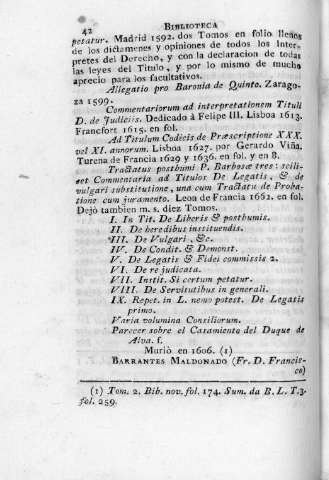 42 BIBLIOTECA
petatur. Madrid 1592. dos Tomos en folio llenos
de los dictamenes y opiniones de todos los Inter-
pretes del Derecho, y con la declaracion de todas
las leyes del Titulo, y por lo mismo de mucho
aprecio para los facultativos.
Allegatio pro Baronia de Quinto. Zarago-
za 1599.
Commentariorum ad interpretationem Tituli
D. de Judiciis. Dedicado à Felipe III. Lisboa 1613.
Francfort 1615. en fol.
Ad Titulum Codicis de Præscriptione XXX.
vel XL annorum. Lisboa 1627. por Gerardo Viña.
Turena de Francia 1629 y 1636. en fol. y en 8.
Tractatus posthumi P. Barbosæ tres: scili-
et Commentaria ad Titulos De Legatis, & de
vulgari substitutione, una cum Tractatu de Proba-
tione cum juramento. Leon de Francia 1662. en fol.
Dejò tambien m. s. diez Tomos.
I. In Tit. De Liberis & posthumis.
II. De heredibus instituendis.
III. De Vulgari, &c.
IV. De Condit. & Demonst.
V. De Legatis & Fidei commissis 2.
VI. De re judicata.
VII. Instit. Si certum petatur.
VIII. De Servitutibus in generali.
IX. Repet. in L. nemo potest. De Legatis
primo.
Varia volumina Consiliorum.
Parecer sobre el Casamiento del Duque de
Alva. f.
Muriò en 1606. (1)
BARRANTES MALDONADO (Fr. D. Francis-
co)
(1) Tom. 2. Bib. nov. fol. 174. Sum. da B. L. T.3.
fol. 259.